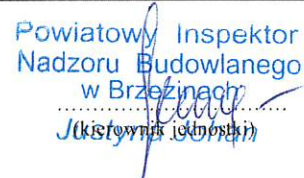 Powiatowy Inspektor
Nadzoru Budowlanego
w Brzezinach
(kierownik jednostki)
Justyna